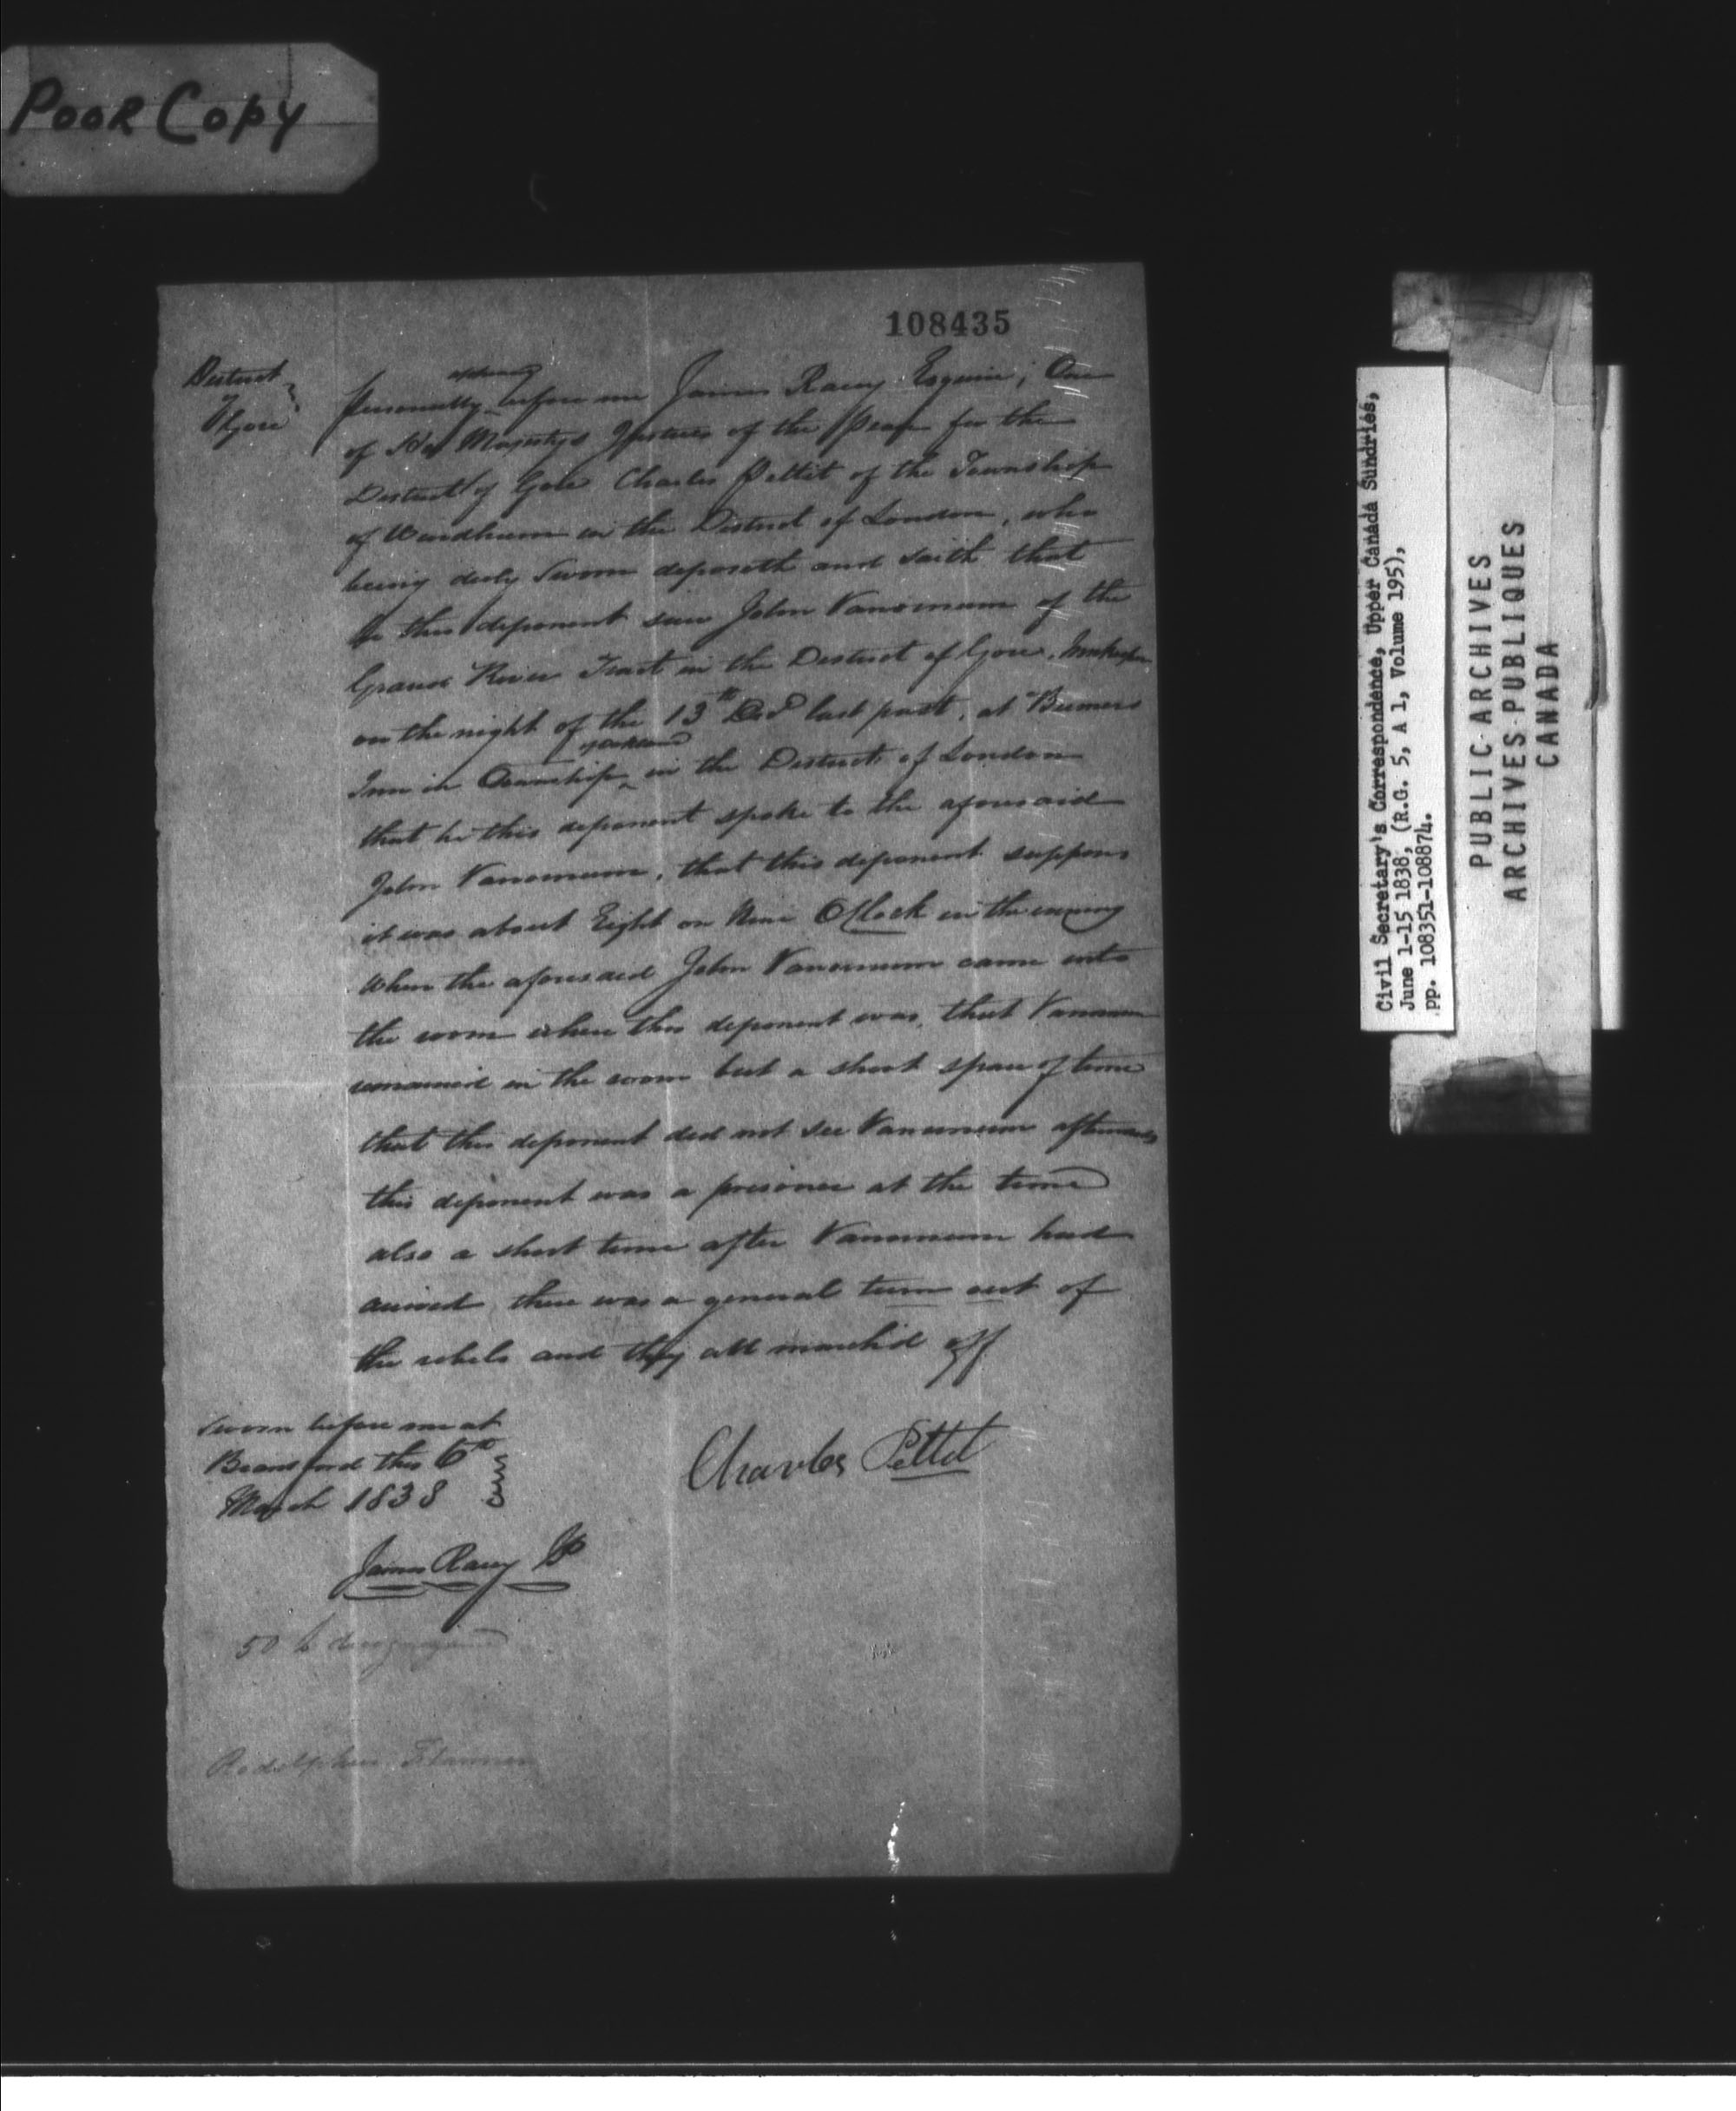 Poor Copy
108435
District
of Gore
appeared
Personally before me James Racey Esquire; One
of Her Majestys Justices of the Peace for the
District of Gore Charles Pettit of the Township
of Windham in the District of London, who
being duly Sworn deposeth and saith that
he this deponent saw John Vannorman of the
Grand River Tract in the District of Gore, Innkeeper
on the night of the 13th Decr last past, at Beemers
Inn in Township oakland in the District of London
that he this deponent spoke to the aforesaid
John Vannorman, that this deponent supposes
it was about Eight or Nine OClock in the evening
when the aforesaid John Vannorman came into
the room where this deponent was, that Vannorman
remained in the room but a short space of time
that this deponent did not see Vannorman afterwards
this deponent was a prisoner at the time
also a short time after Vannorman had
arrived there was a general turn out of
the rebels and they all march'd off
Sworn before me at
Brantford this 6th
March 1838
Charles Pettit
James Racey JP
50
Civil Secretary's Correspondence, Upper Canada Sundries,
June 1-15 1838, (R.G. 5, A 1, Volume 195),
pp. 108351-108874.
PUBLIC ARCHIVES
ARCHIVES PUBLIQUES
CANADA